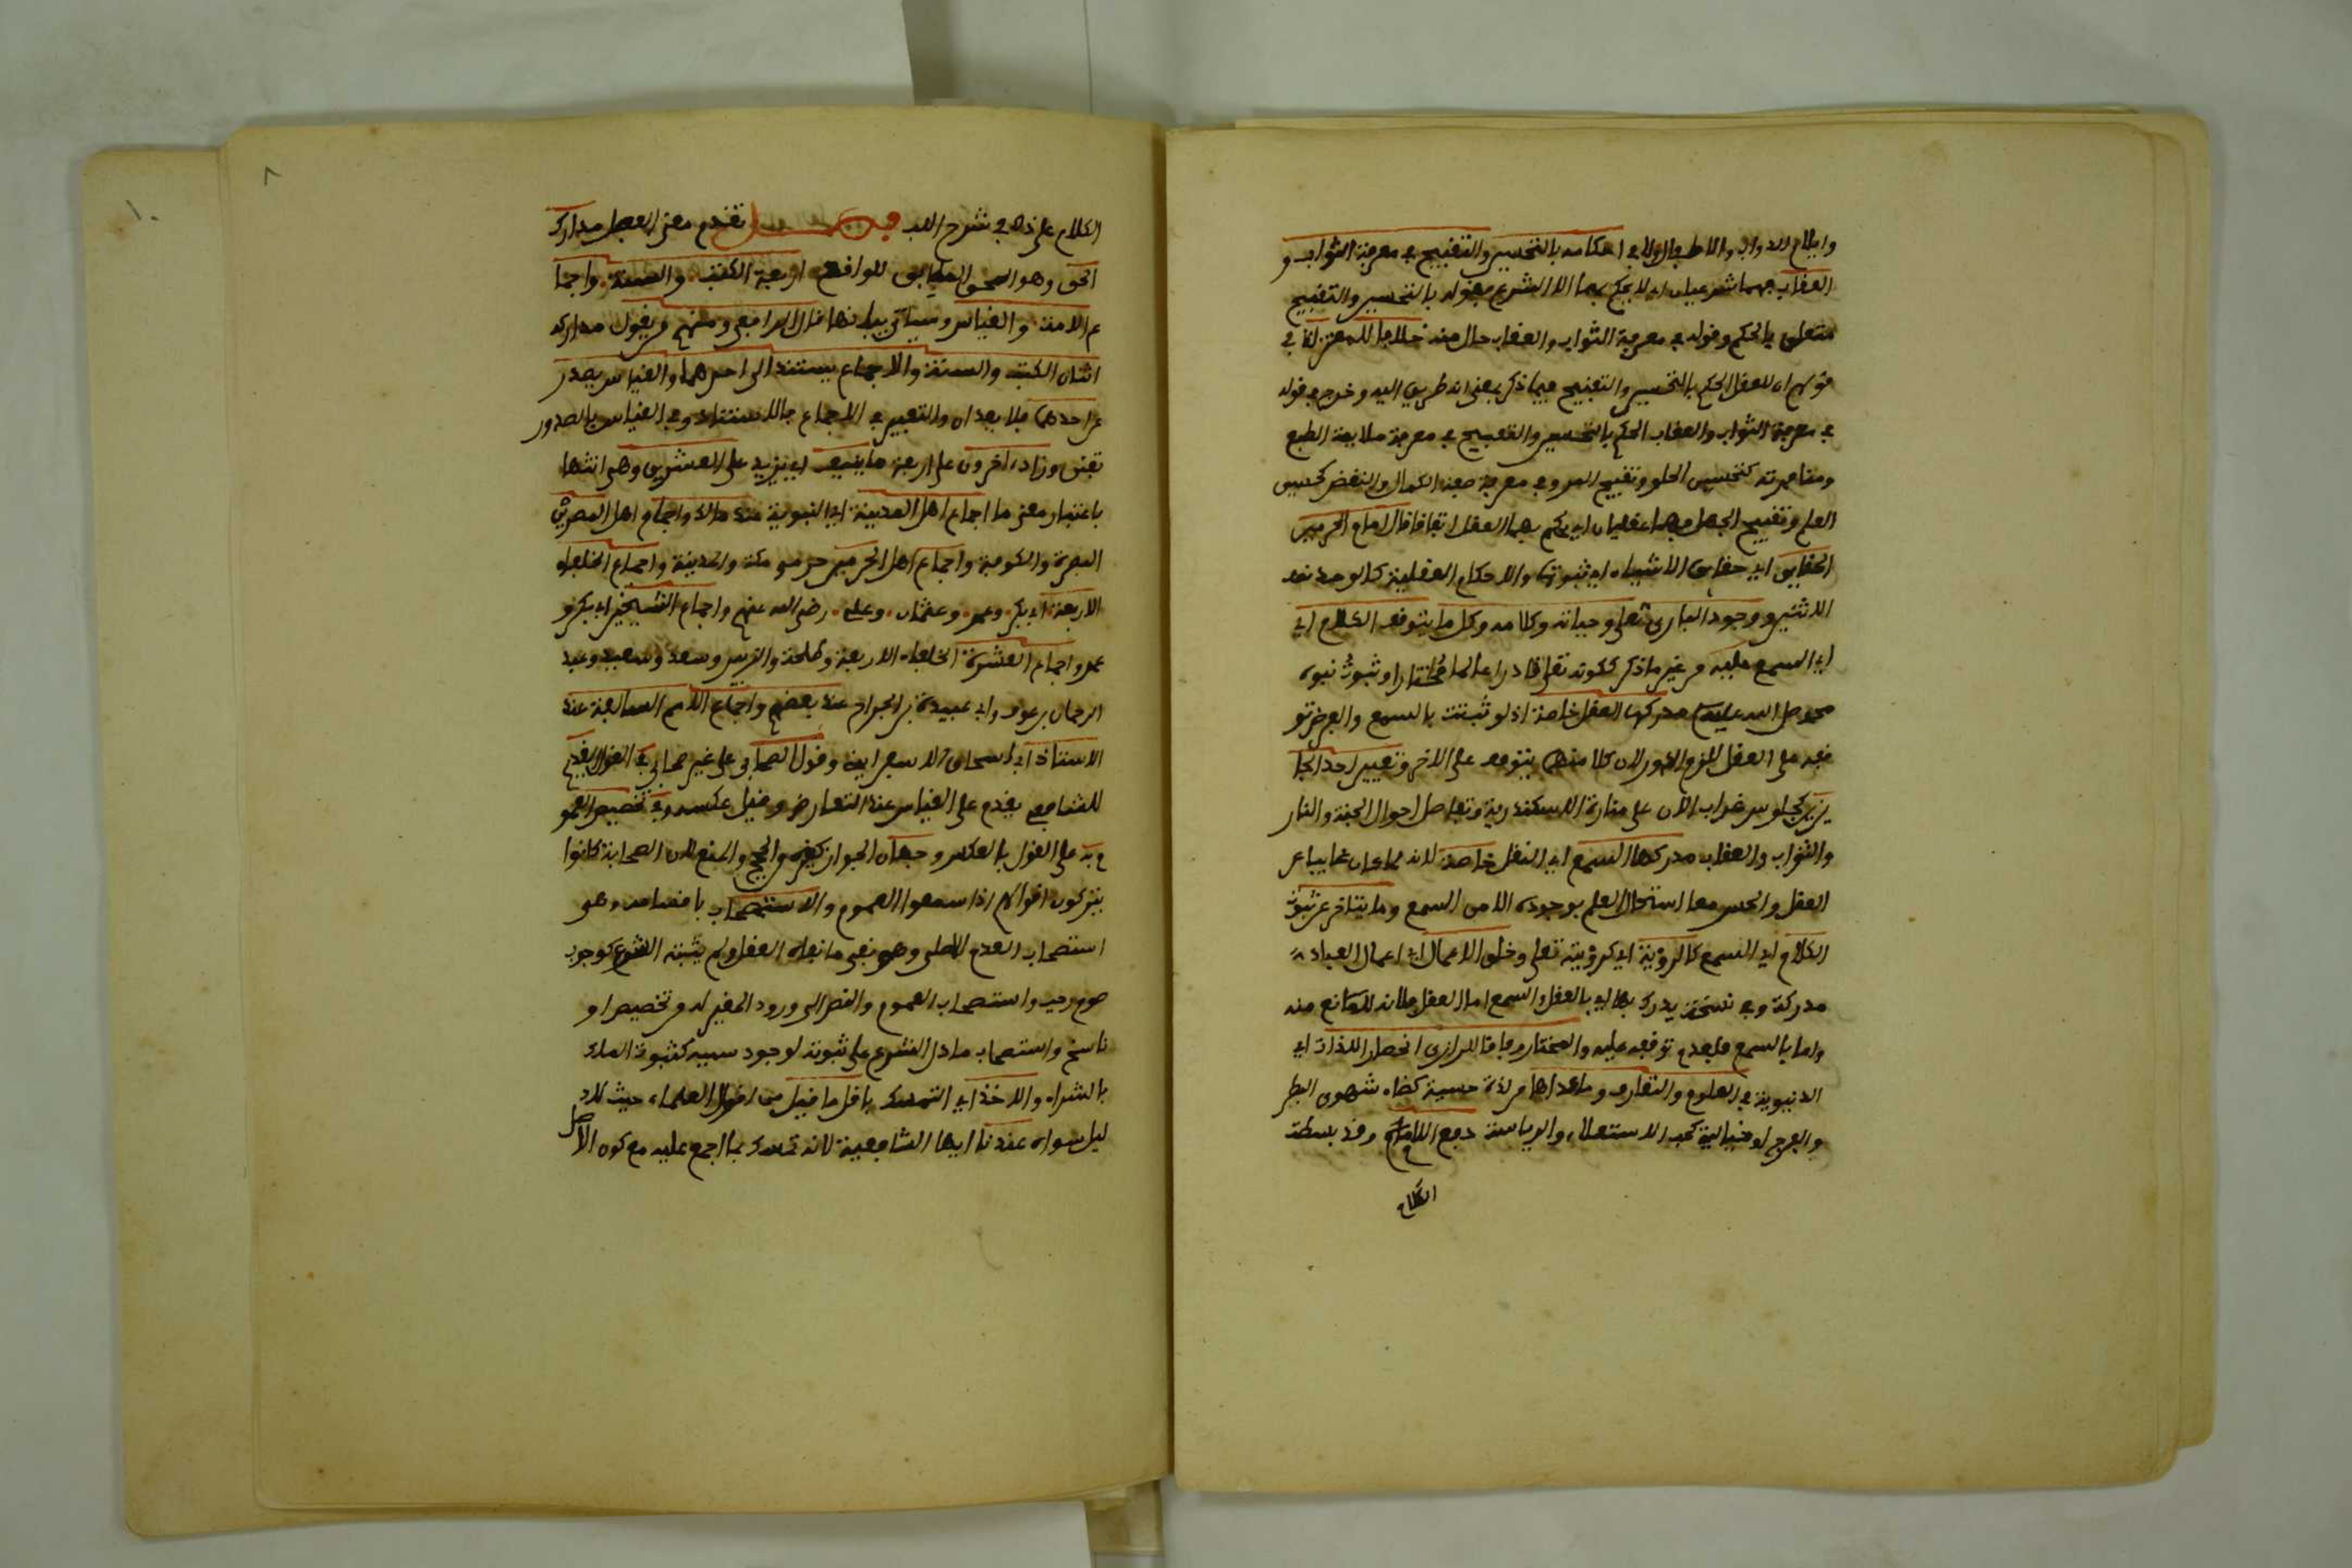 وايلام الدواب والاطفال ولا في احكامه بالتحسين والتقبيح في معرفة الثواب و
العقاب فهما شرعيان اي لا يحكم بهما الا الشرع فقوله بالتحسين والتقبيح
متعلق بالحكم وقوله في معرفة الثواب والعقاب حال منه خلافا للمعتزلة في
قولهم ان للعقل الحكم بالتحسين والتقبيح فيما ذكر بمعنى انه طريق اليه وخرج بقوله
في معرفة الثواب والعقاب الحكم بالتحسين والتقبيح في معرفة ملايمة الطبع
ومنافرته كتحسين الحلو وتقبيح المر وفي معرفة صفة الكمال والنقص كحسن
العلم وتقبيح الجهل فهما عقليان اي يحكم بهما العقل اتفاقا قال امام الحرمين
الحقايق اي حقايق الاشياء اي ثبوتها والاحكام العقلية كالوحدة ضد
الاثنين ووجود الباري تعلى وحياته وكلامه وكل ما يتوقف الكلام اي
اي السمع عليه من غير ما ذكر ككونه تعلى قادرا عالما مختارا وثبوت نبوة
محمد صلى الله عليه مدركها العقل خاصة اذ لو ثبتت بالسمع والفرض تو
قفه على العقل للزم الدور لان كلا منهما يتوقف على الاخر وتعيين احد الجا
يزين كجلوس غراب الان على منارة الاسكندرية وتفاصل احوال الجنة والنار
والثواب والعقاب مدركها السمع اي النقل خاصة لانه لما كان غايبا عن
العقل والحس معا استحال العلم بوجوده الا من السمع وما يتاخر عن ثبوت
الكلام اي السمع كالرؤية اي كرؤيته تعلى وخلق الاعمال اي اعمال العباد
مدركة وفي نسخة يدرك بها اي بالعقل والسمع اما العقل فلانه لا مانع منه
واما بالسمع فلعدم توقفه عليه والمختار وفاقا للرازي انحصار اللذات اي
الدنيوية في العلوم والمعارف وما عداها من لذة حسية كقضاء شهوتي البطن
والفرج او خيالية كحب الاستعلاء والرياسة دفع الالام وقد بسطت
الكلام
الكلام على ذلك في شرح اللب فصل تقدم معنى الفصل مدارك
الحق وهو الحق المطابق للواقع اربعة الكتب والسنة واجما
ع الامة والقياس وسياتي بيانها قال الرافعي ومنهم من يقول مداركه
اثنان الكتب والسنة والاجماع يستند الى احدهما والقياس يصدر
عن احدهما فلا يعدان والتعبير في الاجماع بالاستناد وفي القياس بالصدور
تفنن وزاد اخرون على اربعة ما ينيف اي يزيد على العشرين وهي انشها
باعتبار معنى ما اجماع اهل المدينة اي النبوية عند مالك واجماع اهل المصرين
البصرة والكوفة واجماع اهل الحرمين حرمي مكة والمدينة واجماع الخلفاء
الاربعة ابي بكر وعمر وعثمان وعلي رضي الله عنهم واجماع الشيخين ابي بكر و
عمر واجماع العشرة الخلفاء الاربعة وطلحة والزبير وسعد وسعيد وعبد
الرحمان بن عوف وابي عبيدة بن الجراح عند بعضهم واجماع الامم السالفة عند
الاستاذ ابي اسحاق الاسفراينى وقول الصحابي على غير صحابي في القول القديم
للشافعي يقدم على القياس عند التعارض وقيل عكسه وفي تخصيص العمو
م به على القول بالعكس وجهان الجواز كغيره من الحجج والمنع لان الصحابة كانوا
يتركون اقوالهم اذا سمعوا العموم والاستصحاب باقسامه وهي
استصحاب العدم الاصلي وهو نفي ما نفاه العقل ولم يثبته الشرع كوجوب
صوم رجب واستصحاب العموم والنص الى ورود المغير له من تخصيص او
ناسخ واستصحاب ما دل الشرع على ثبوته لوجود سببه كثبوت الملك
بالشراء والاخذ اي التمسك باقل ما قيل من اقوال العلماء حيث لا د
ليل سواه عندنا ايها الشافعية لانه تمسك بما اجمع عليه مع كون الاصل
٨
١٠